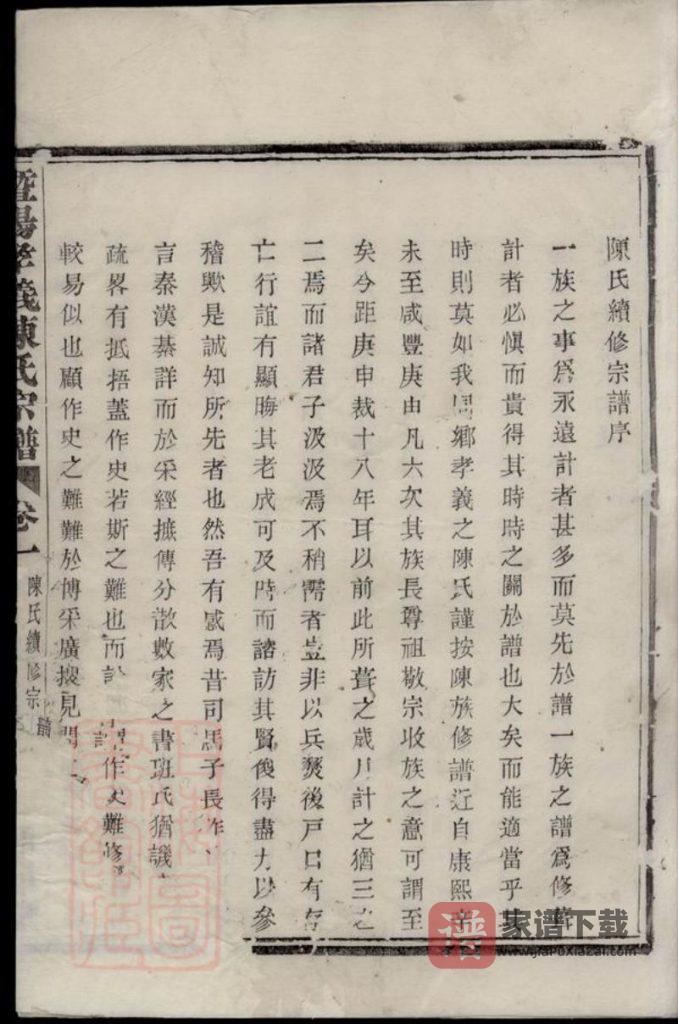 陳氏續修宗譜序
一族之事爲永遠計者甚多而莫先於譜一族之譜爲修葺
計者必愼而貴得其時時之關於譜也大矣而能適當乎其
時則莫如我同鄉孝義之陳氏謹按陳族修譜近自康熙辛
未至咸豐庚申凡六次其族長尊祖敬宗收族之意可謂至
矣今距庚申裁十八年耳以前此所葺之歲月計之猶三之
二焉而諸君子汲汲焉不稍懈者豈非以兵燹後戶口有存
亡行誼有顯晦其老成可及時而諮訪其賢俊得盡力以參
稽歟是誠知所先者也然吾有感焉昔司馬子長作
言秦漢綦詳而於采經摭傳分散數家之書班氏猶譏
疏畧有抵捂蓋作史若斯之難也而 作史難修
較易似也顧作史之難難於博采廣搜見聞
暨陽孝義陳氏宗譜 卷一 陳氏續修宗
譜 家谱下载
www.jiapuxiazai.com